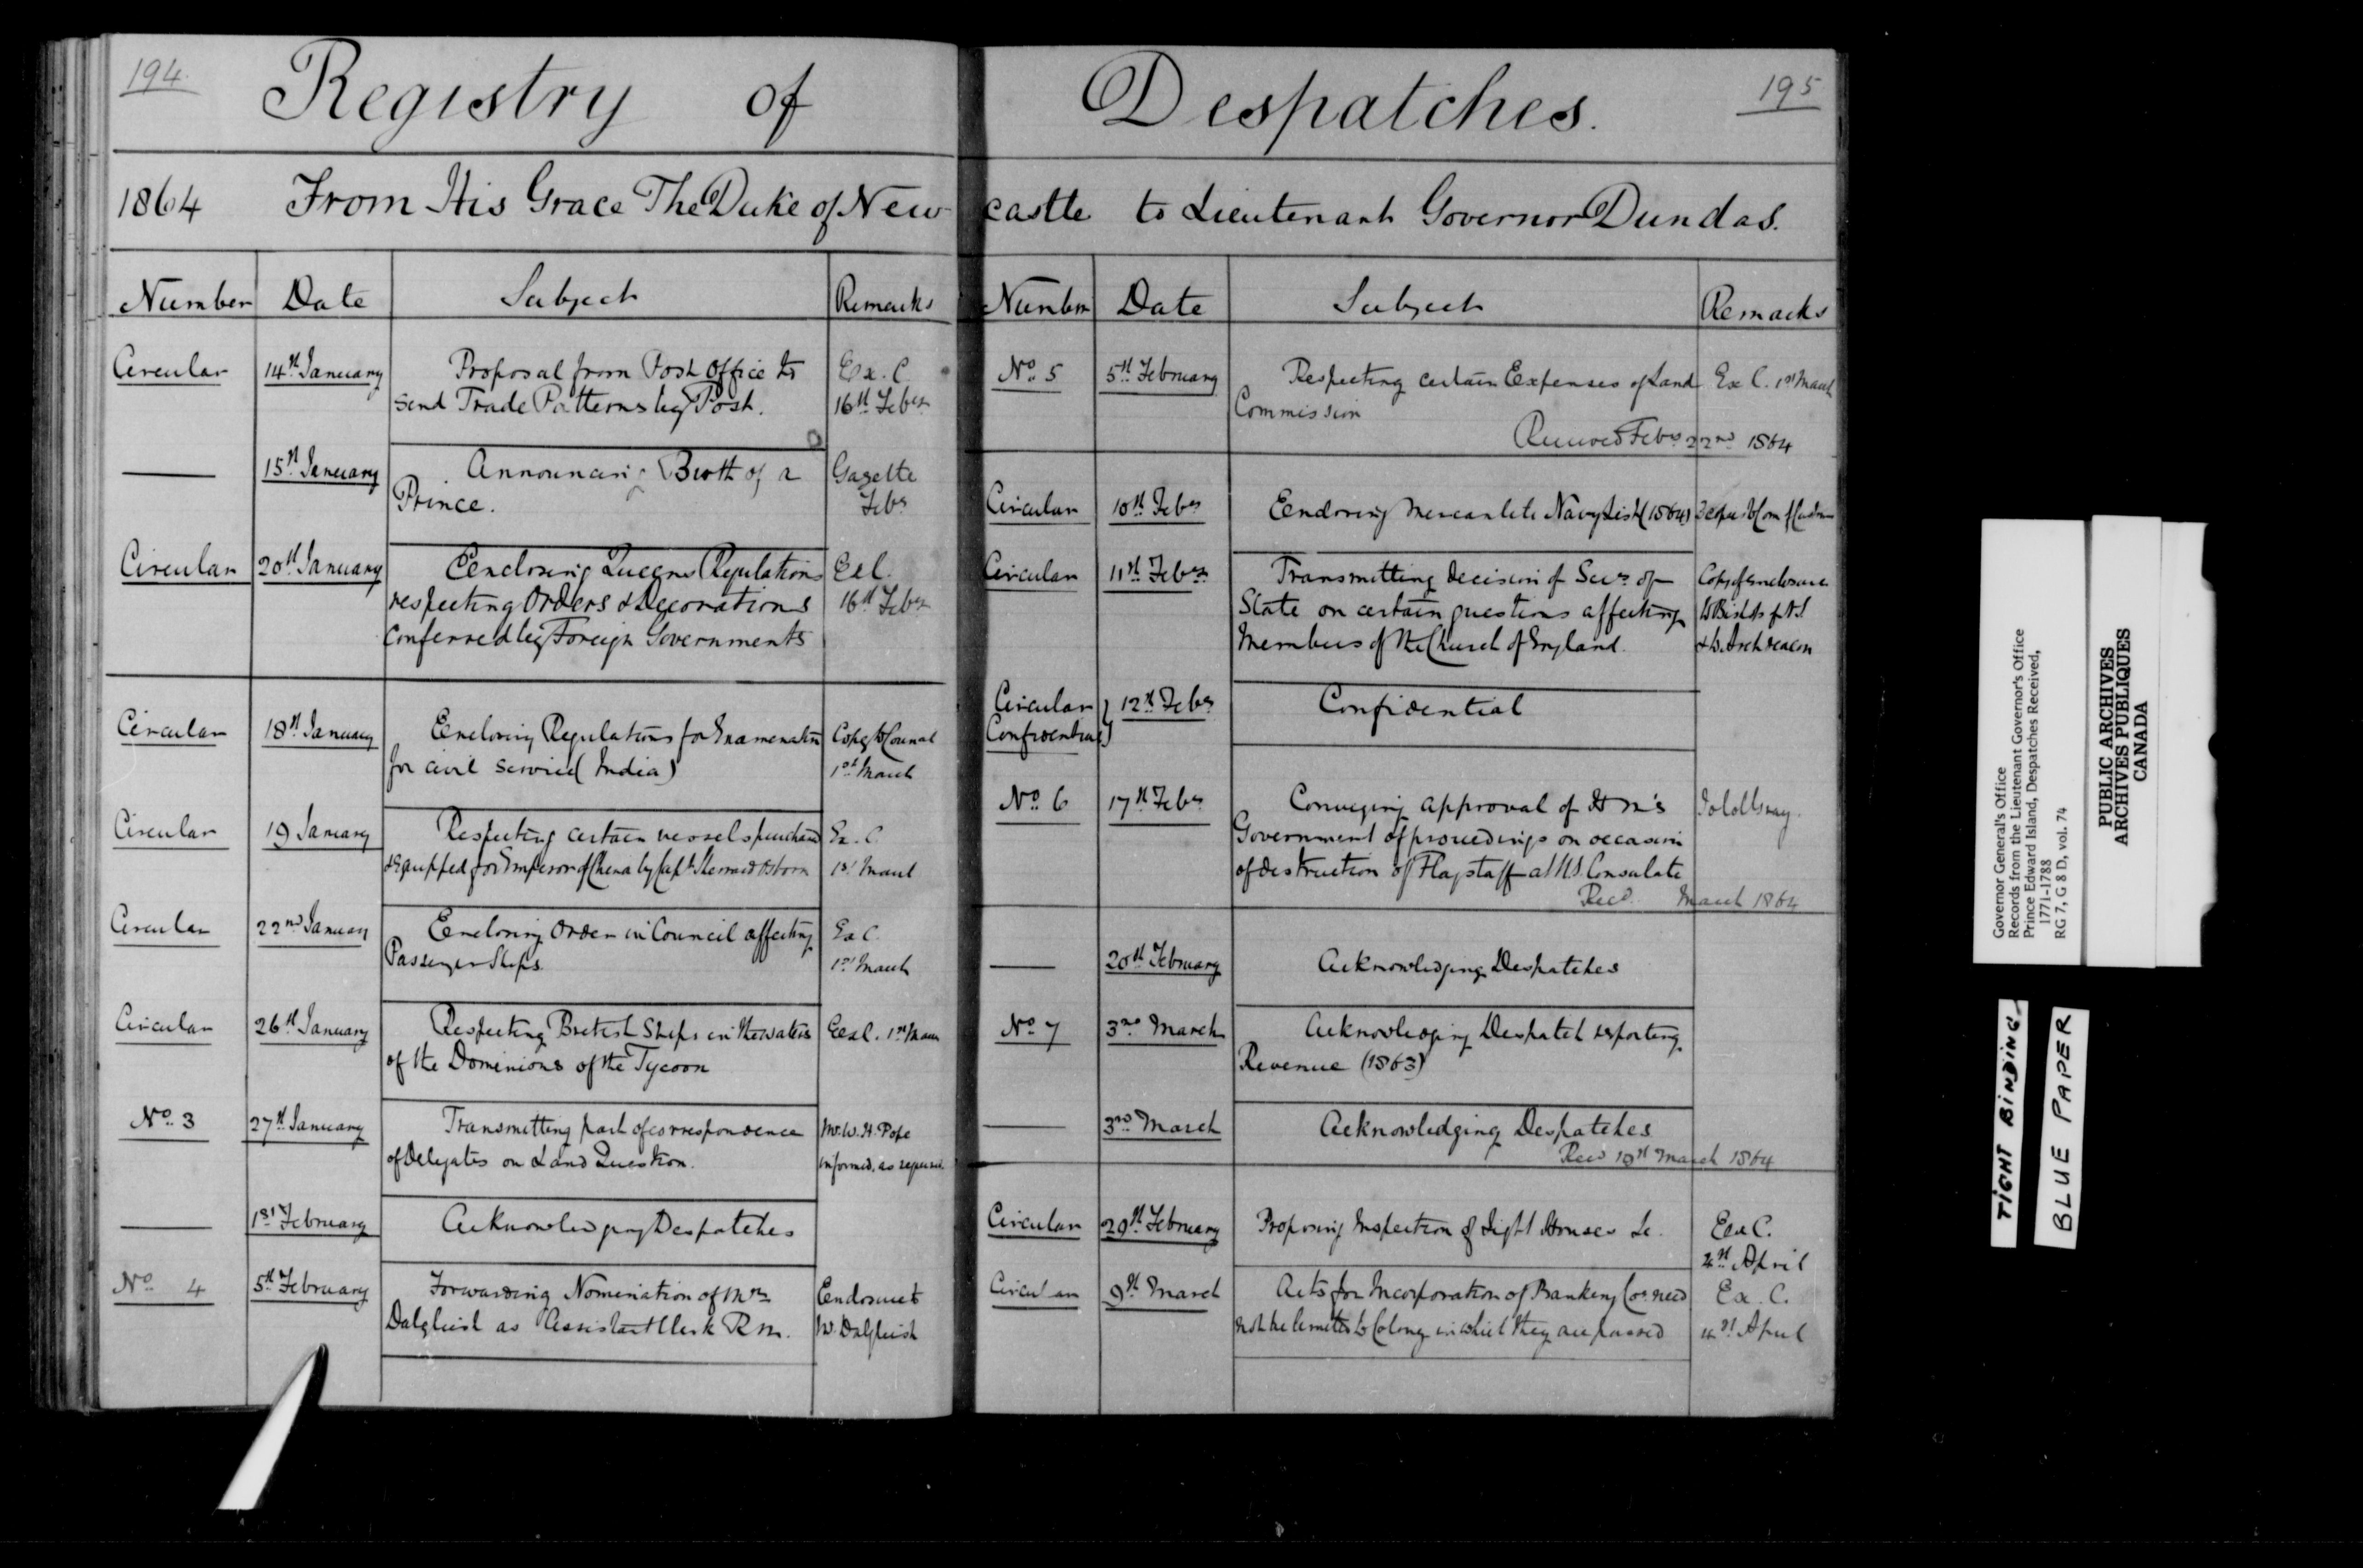 194
Registry of
1864 From His Grace The Duke of New-
Number Date Subject Remarks
Circular 14th January Proposal from Post Office to Ex. C.
send Trade Patterns by Post. 16th Feby
15th January Announcing Birth of a Gazette
Prince. Feby
Circular 20th January Enclosing Queens Regulations Ex C.
respecting Orders & Decorations 16th Feby
conferred by Foreign Governments
Circular 18th January Enclosing Regulations for Examination Copy to Council
for Civil Service (India) 1st March
Circular 19 January Respecting certain vessels purchased Ex. C.
& equipped for Emperor of China by Capt Sherard Osborn 1st March
Circular 22nd January Enclosing Order in Council affecting Ex C.
Passenger Ships. 1st March
Circular 26th January Respecting British Ships in the waters Ex C. 1st March
of the Dominions of the Tycoon
No. 3 27th January Transmitting part of correspondence Mr. W. H. Pope
of Delegates on Land Question. informed, as
1st February Acknowledging Despatches
No 4 5th February Forwarding Nomination of Mr
Dalgliesh as Assistant Clerk R.M. W. Dalgliesh
195
Despatches.
castle to Lieutenant Governor Dundas.
Number Date Subject Remarks
No. 5 5th February Respecting certain Expenses of Land Ex C. 1st March
Commission
Received Feby 22nd 1864
Circular 10th Feby Enclosing Mercantile Navy List (1864)
Circular 11th Feby Transmitting decision of Secy of Copy of enclosure
State on certain questions affecting to Bishop of N.S.
Members of the Church of England. & to Archdeacon
Circular 12th Feby Confidential
Confidential
No. 6 17th Feby Conveying approval of H M's To Col Gray.
Government of proceedings on occasion
of destruction of Flagstaff at U.S. Consulate
Recd. March 1864
20th February Acknowledging Despatches
No. 7 3rd March Acknowledging Despatch reporting
Revenue (1863)
3rd March Acknowledging Despatches
Recd 19th March 1864
Circular 29th February Proposing Inspection of Light Houses &c. Ex C.
4th April
Circular 9th March Acts for Incorporation of Banking Cos. need Ex. C.
not be limited to Colony in which they are passed 4th April
Governor General's Office
Records from the Lieutenant Governor's Office
Prince Edward Island, Despatches Received,
1771-1788
RG 7, G 8 D, vol. 74
PUBLIC ARCHIVES
ARCHIVES PUBLIQUES
CANADA
TIGHT BINDING
BLUE PAPER